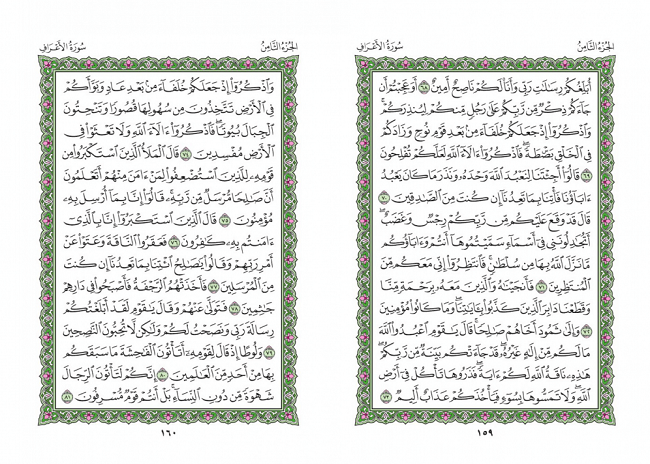 الجزء الثامن
سورة الأعراف
أُبَلِّغُكُمْ رِسَالَاتِ رَبِّي وَأَنَا لَكُمْ نَاصِحٌ أَمِينٌ ٦٨ أَوَعَجِبْتُمْ أَن
جَاءَكُمْ ذِكْرٌ مِّن رَّبِّكُمْ عَلَىٰ رَجُلٍ مِّنكُمْ لِيُنذِرَكُمْ
وَاذْكُرُوا إِذْ جَعَلَكُمْ خُلَفَاءَ مِن بَعْدِ قَوْمِ نُوحٍ وَزَادَكُمْ
فِي الْخَلْقِ بَصْطَةً فَاذْكُرُوا آلَاءَ اللَّهِ لَعَلَّكُمْ تُفْلِحُونَ
٦٩ قَالُوا أَجِئْتَنَا لِنَعْبُدَ اللَّهَ وَحْدَهُ وَنَذَرَ مَا كَانَ يَعْبُدُ
آبَاؤُنَا فَأْتِنَا بِمَا تَعِدُنَا إِن كُنتَ مِنَ الصَّادِقِينَ ٧٠
قَالَ قَدْ وَقَعَ عَلَيْكُم مِّن رَّبِّكُمْ رِجْسٌ وَغَضَبٌ
أَتُجَادِلُونَنِي فِي أَسْمَاءٍ سَمَّيْتُمُوهَا أَنتُمْ وَآبَاؤُكُم
مَّا نَزَّلَ اللَّهُ بِهَا مِن سُلْطَانٍ فَانتَظِرُوا إِنِّي مَعَكُم مِّنَ
الْمُنتَظِرِينَ ٧١ فَأَنجَيْنَاهُ وَالَّذِينَ مَعَهُ بِرَحْمَةٍ مِّنَّا
وَقَطَعْنَا دَابِرَ الَّذِينَ كَذَّبُوا بِآيَاتِنَا وَمَا كَانُوا مُؤْمِنِينَ
٧٢ وَإِلَىٰ ثَمُودَ أَخَاهُمْ صَالِحًا قَالَ يَا قَوْمِ اعْبُدُوا اللَّهَ
مَا لَكُم مِّنْ إِلَٰهٍ غَيْرُهُ قَدْ جَاءَتْكُم بَيِّنَةٌ مِّن رَّبِّكُمْ
هَٰذِهِ نَاقَةُ اللَّهِ لَكُمْ آيَةً فَذَرُوهَا تَأْكُلْ فِي أَرْضِ
اللَّهِ وَلَا تَمَسُّوهَا بِسُوءٍ فَيَأْخُذَكُمْ عَذَابٌ أَلِيمٌ ٧٣
١٥٩
الجزء الثامن
سورة الأعراف
وَاذْكُرُوا إِذْ جَعَلَكُمْ خُلَفَاءَ مِن بَعْدِ عَادٍ وَبَوَّأَكُمْ
فِي الْأَرْضِ تَتَّخِذُونَ مِن سُهُولِهَا قُصُورًا وَتَنْحِتُونَ
الْجِبَالَ بُيُوتًا فَاذْكُرُوا آلَاءَ اللَّهِ وَلَا تَعْثَوْا فِي
الْأَرْضِ مُفْسِدِينَ ٧٤ قَالَ الْمَلَأُ الَّذِينَ اسْتَكْبَرُوا مِن
قَوْمِهِ لِلَّذِينَ اسْتُضْعِفُوا لِمَنْ آمَنَ مِنْهُمْ أَتَعْلَمُونَ
أَنَّ صَالِحًا مُّرْسَلٌ مِّن رَّبِّهِ قَالُوا إِنَّا بِمَا أُرْسِلَ بِهِ
مُؤْمِنُونَ ٧٥ قَالَ الَّذِينَ اسْتَكْبَرُوا إِنَّا بِالَّذِي
آمَنتُم بِهِ كَافِرُونَ ٧٦ فَعَقَرُوا النَّاقَةَ وَعَتَوْا عَنْ
أَمْرِ رَبِّهِمْ وَقَالُوا يَا صَالِحُ ائْتِنَا بِمَا تَعِدُنَا إِن كُنتَ
مِنَ الْمُرْسَلِينَ ٧٧ فَأَخَذَتْهُمُ الرَّجْفَةُ فَأَصْبَحُوا فِي دَارِهِمْ
جَاثِمِينَ ٧٨ فَتَوَلَّىٰ عَنْهُمْ وَقَالَ يَا قَوْمِ لَقَدْ أَبْلَغْتُكُمْ
رِسَالَةَ رَبِّي وَنَصَحْتُ لَكُمْ وَلَٰكِن لَّا تُحِبُّونَ النَّاصِحِينَ
٧٩ وَلُوطًا إِذْ قَالَ لِقَوْمِهِ أَتَأْتُونَ الْفَاحِشَةَ مَا سَبَقَكُم
بِهَا مِنْ أَحَدٍ مِّنَ الْعَالَمِينَ ٨٠ إِنَّكُمْ لَتَأْتُونَ الرِّجَالَ
شَهْوَةً مِّن دُونِ النِّسَاءِ بَلْ أَنتُمْ قَوْمٌ مُّسْرِفُونَ ٨١
١٦٠